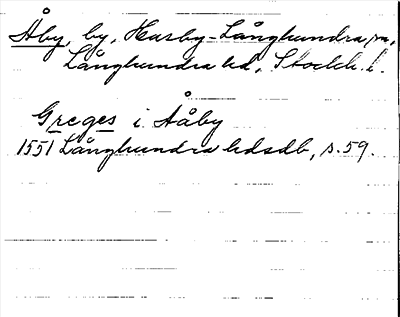 Åby, by, Husby-Långhundra sn,
Långhundra hd, Stockh. l.
Greges i Aåby
1551 Långhundra hdsdb, s. 59.